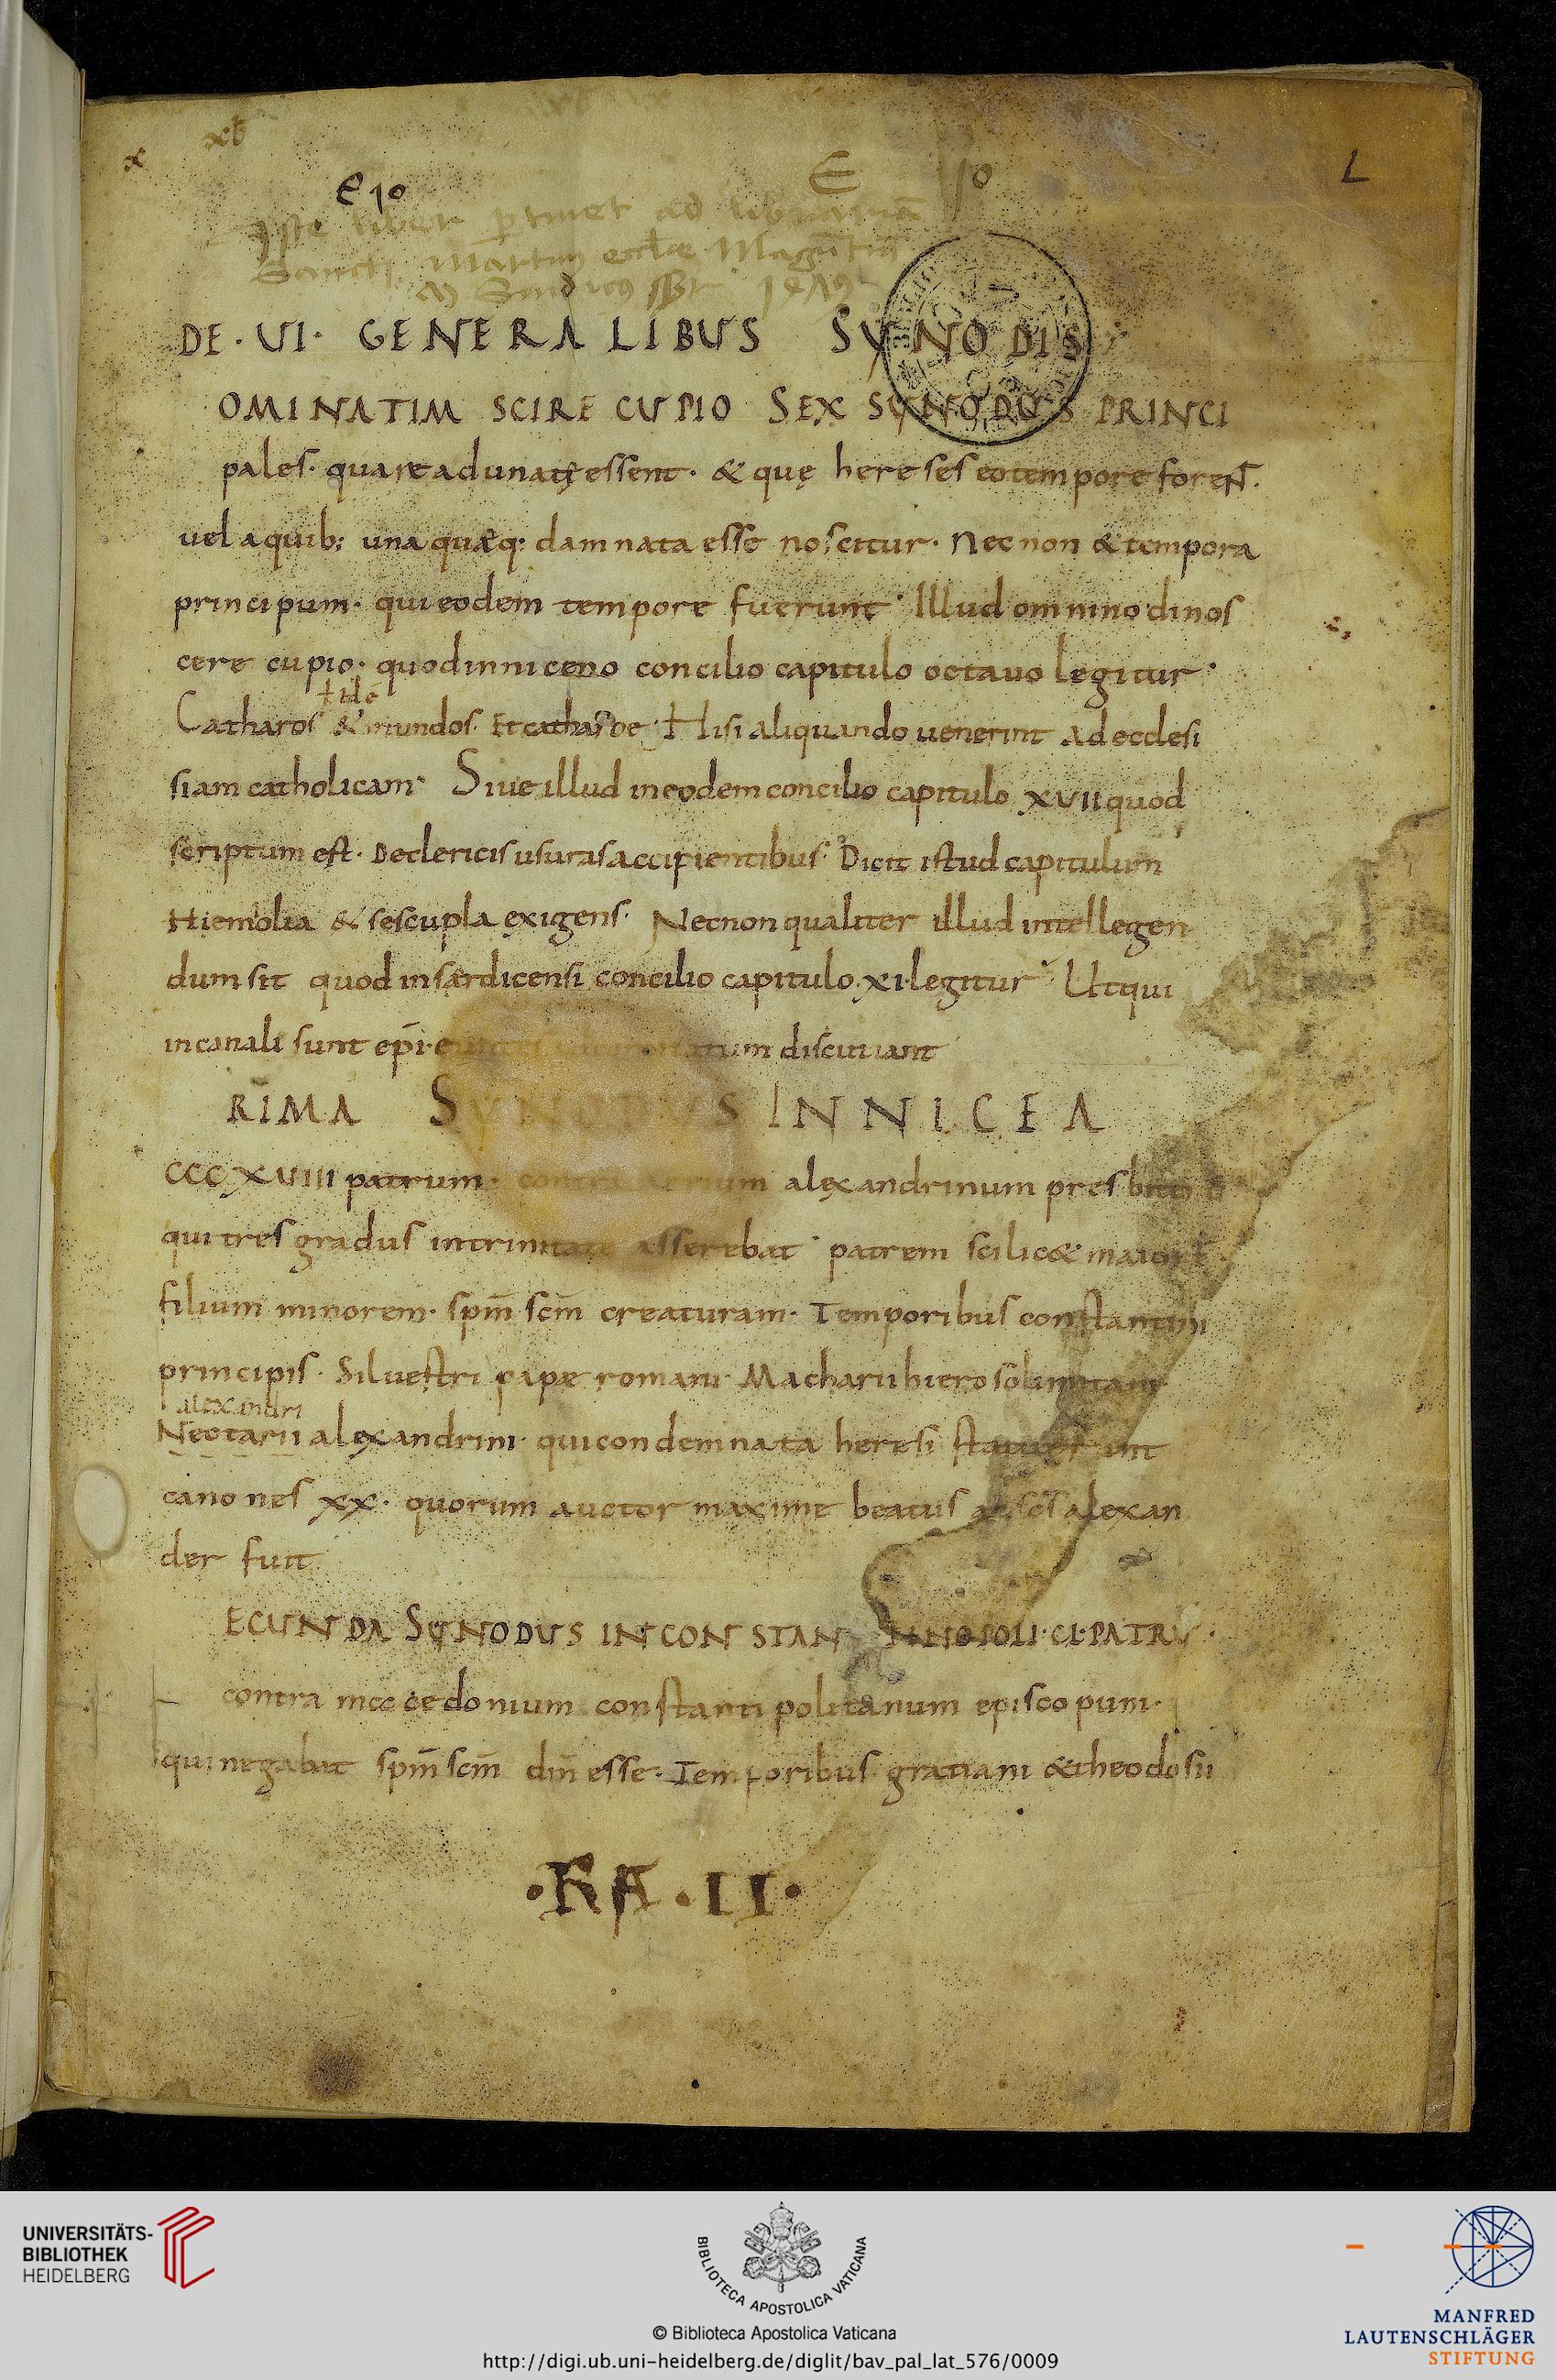 x
xb
E 10
E 10
1
Iste liber ꝑtinet ad librariā
Sancti Martini eccl̄ie Magūtin̄
M Sindicꝰ sspt 1479
DE · VI · GENERALIBUS SYNODIS
OMINATIM SCIRE CUPIO SEX SYNODUS PRINCI
pales · quare adunatę essent · & quę hereses eo tempore foreNT̄ ·
uel a quib; una quæq; damnata esse noscitur · Nec non & tempora
principum · qui eodem tempore fuerunt · Illud omnino dinos
cere cupio · quod in niceno concilio capitulo octauo legitur ·
ɫ idē
Catharos & mundos · Et catharoe · Hi si aliquando uenerint ad ecclesi
siam catholicam · Siue illud in eodem concilio capitulo XVII quod
scriptum est · De clericis usuras accipientibus · Dicit istud capitulum
Hiemolia & sescupla exigens · Nec non qualiter illud intellegen
dum sit quod in sardicensi concilio capitulo · XI · legitur · Ut qui
in canali sunt ep̄i · discutiant
RIMA SYNODUS IN NICEA
CCCXVIII patrum · contra arrium alexandrinum presbit
qui tres gradus in trinitate asserebat · patrem scilic& maiorē
filium minorem · sp̄m sc̄m creaturam · Temporibus constantini
principis · Siluestri papæ romani · Macharii hierosolimitani
alexandri
Neotarii alexandrini · qui condemnata heresi statuerunt
canones XX · quorum auctor maxime beatus ac sc̄s alexan
der fuit
ECUNDA SYNODUS IN CONSTAN NINOPOLI · CL · PATRŪ ·
contra mace cedonium constantipolitanum episcopum ·
qui negabat sp̄m sc̄m dm̄ esse · Temporibus gratiani & theodosii
· RA · II ·
UNIVERSITÄTS-
BIBLIOTHEK
HEIDELBERG
BIBLIOTECA APOSTOLICA VATICANA
© Biblioteca Apostolica Vaticana
http://digi.ub.uni-heidelberg.de/diglit/bav_pal_lat_576/0009
MANFRED
LAUTENSCHLÄGER
STIFTUNG